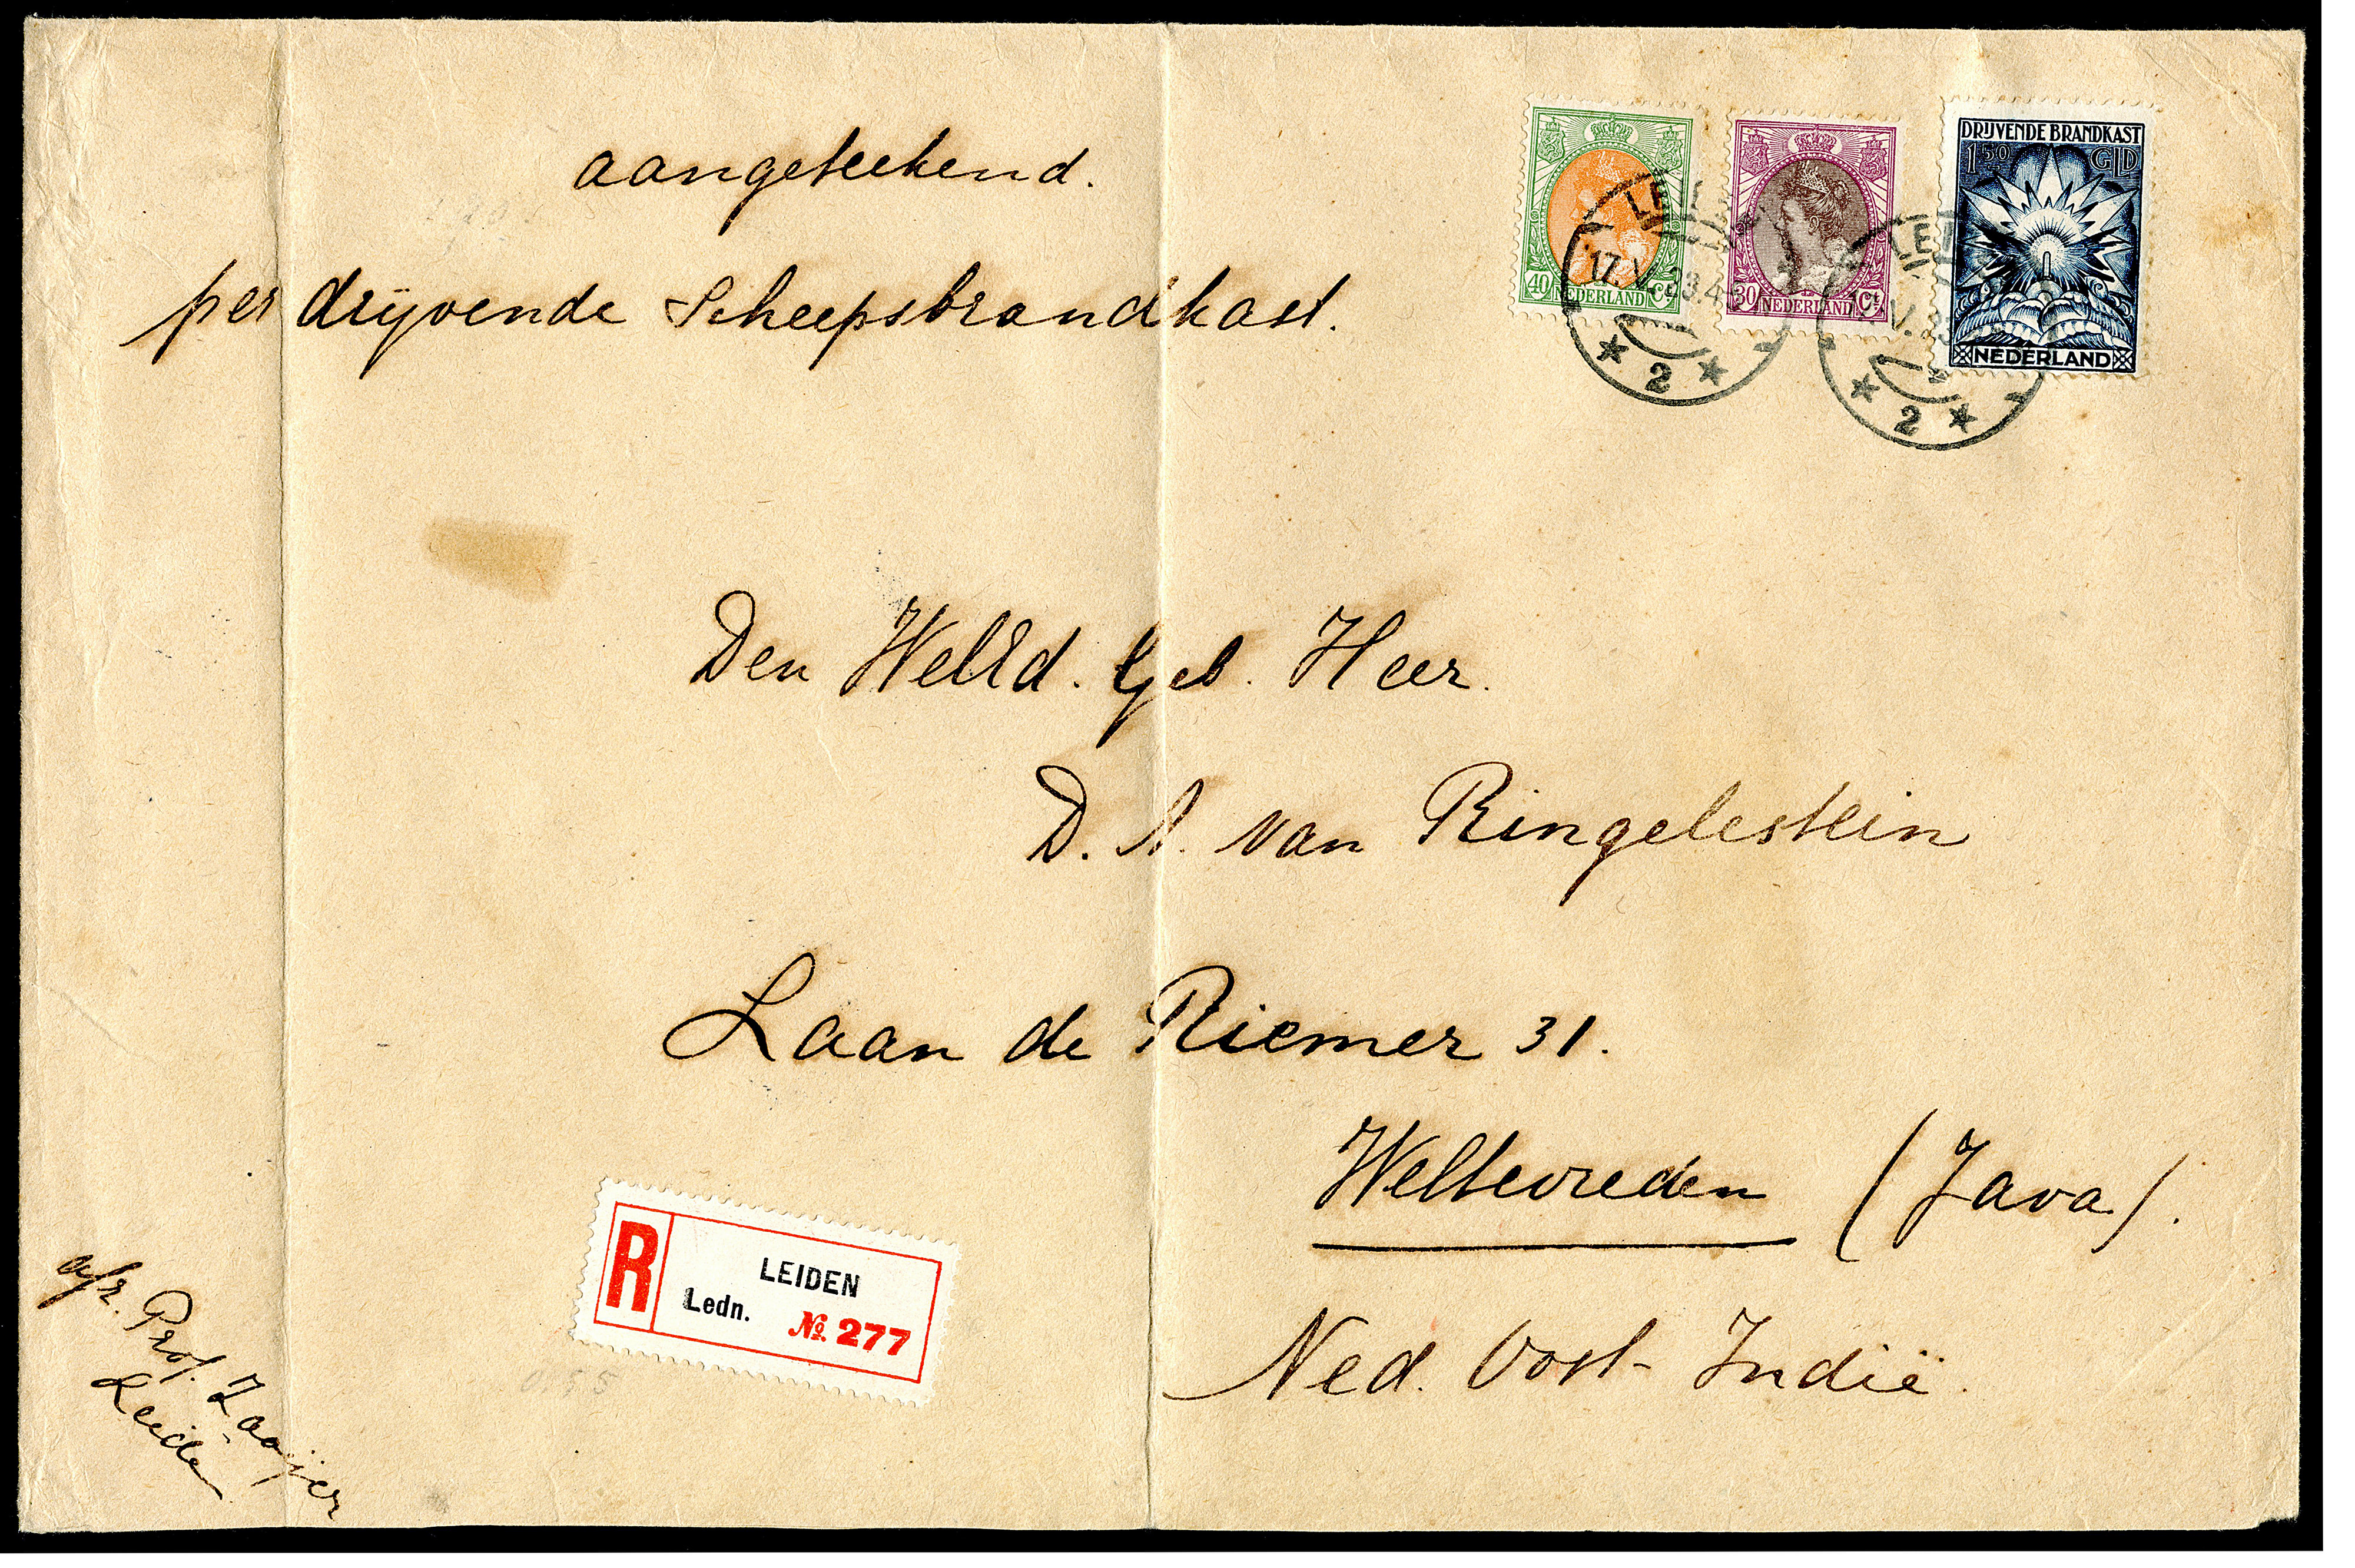 aangeteekend.
per drijvende Scheepsbrandkast.
40 NEDERLAND Ct
30 NEDERLAND Ct
DRIJVENDE BRANDKAST
1 50 GLD
NEDERLAND
2
2
Den WelEd. Geb. Heer.
D. A. van Ringelestein
Laan de Riemer 31.
Weltevreden (Java).
Ned. Oost-Indië.
R
LEIDEN
Ledn. No. 277
afz. Prof. Zaaijer
Leide